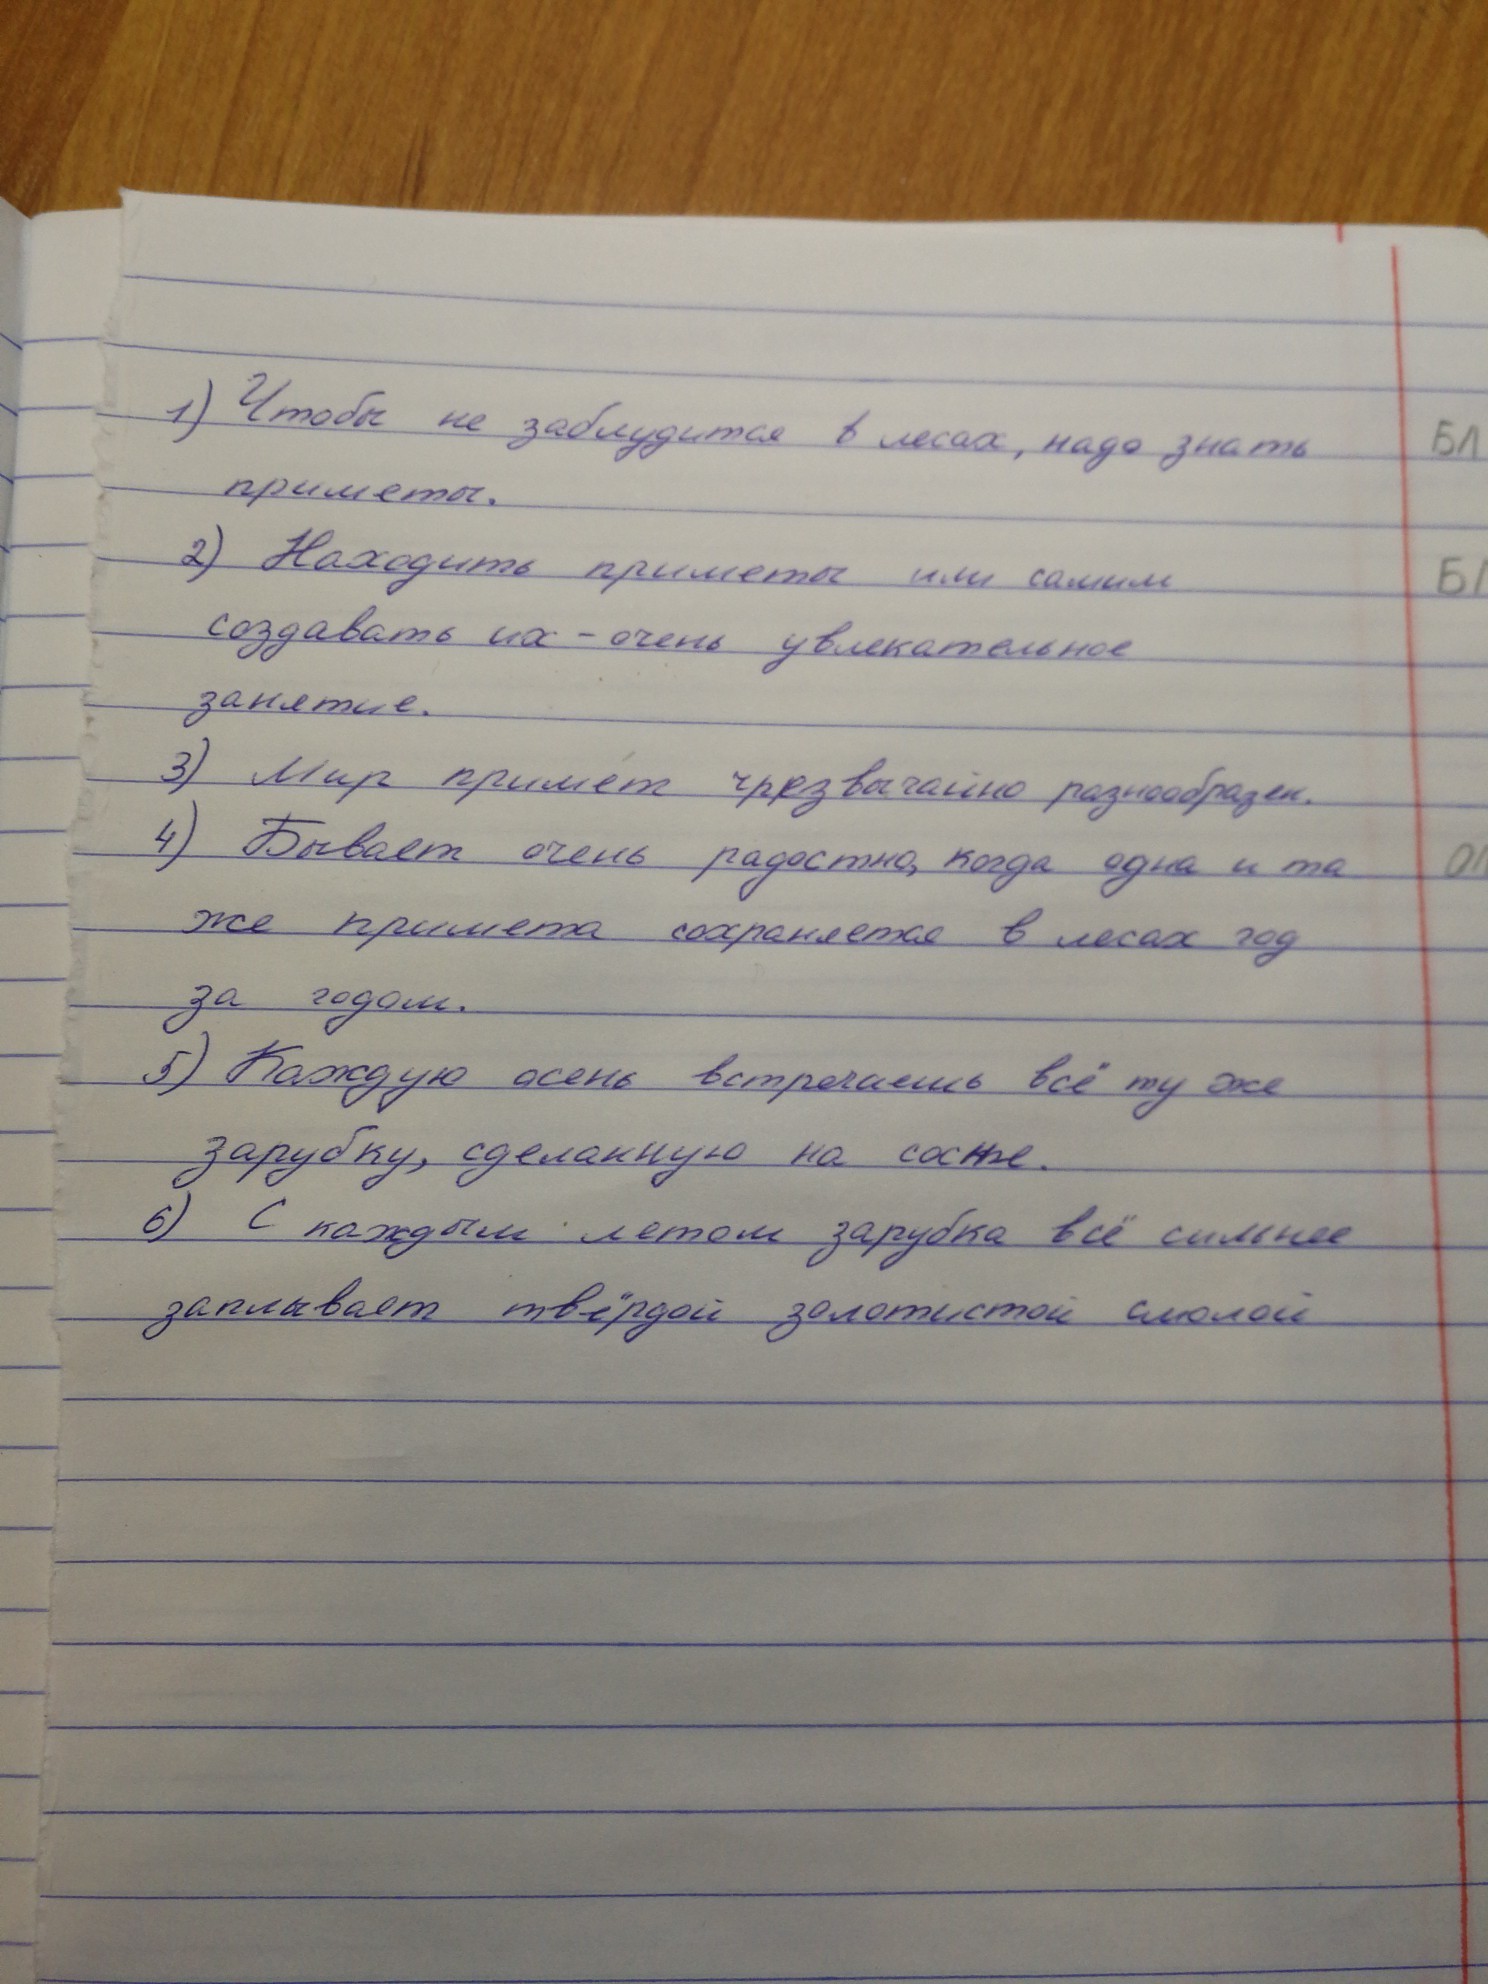 1) Чтобы не заблудится в лесах, надо знать БЛ
приметы.
2) Находить приметы или самим БЛ
создавать их - очень увлекательное
занятие.
3) Мир примет чрезвычайно разнообразен.
4) Бывает очень радостно, когда одна и та
же примета сохраняется в лесах год
за годом.
5) Каждую осень встречаешь всё ту же
зарубку, сделанную на сосне.
6) С каждым летом зарубка всё сильнее
заплывает твёрдой золотистой смолой